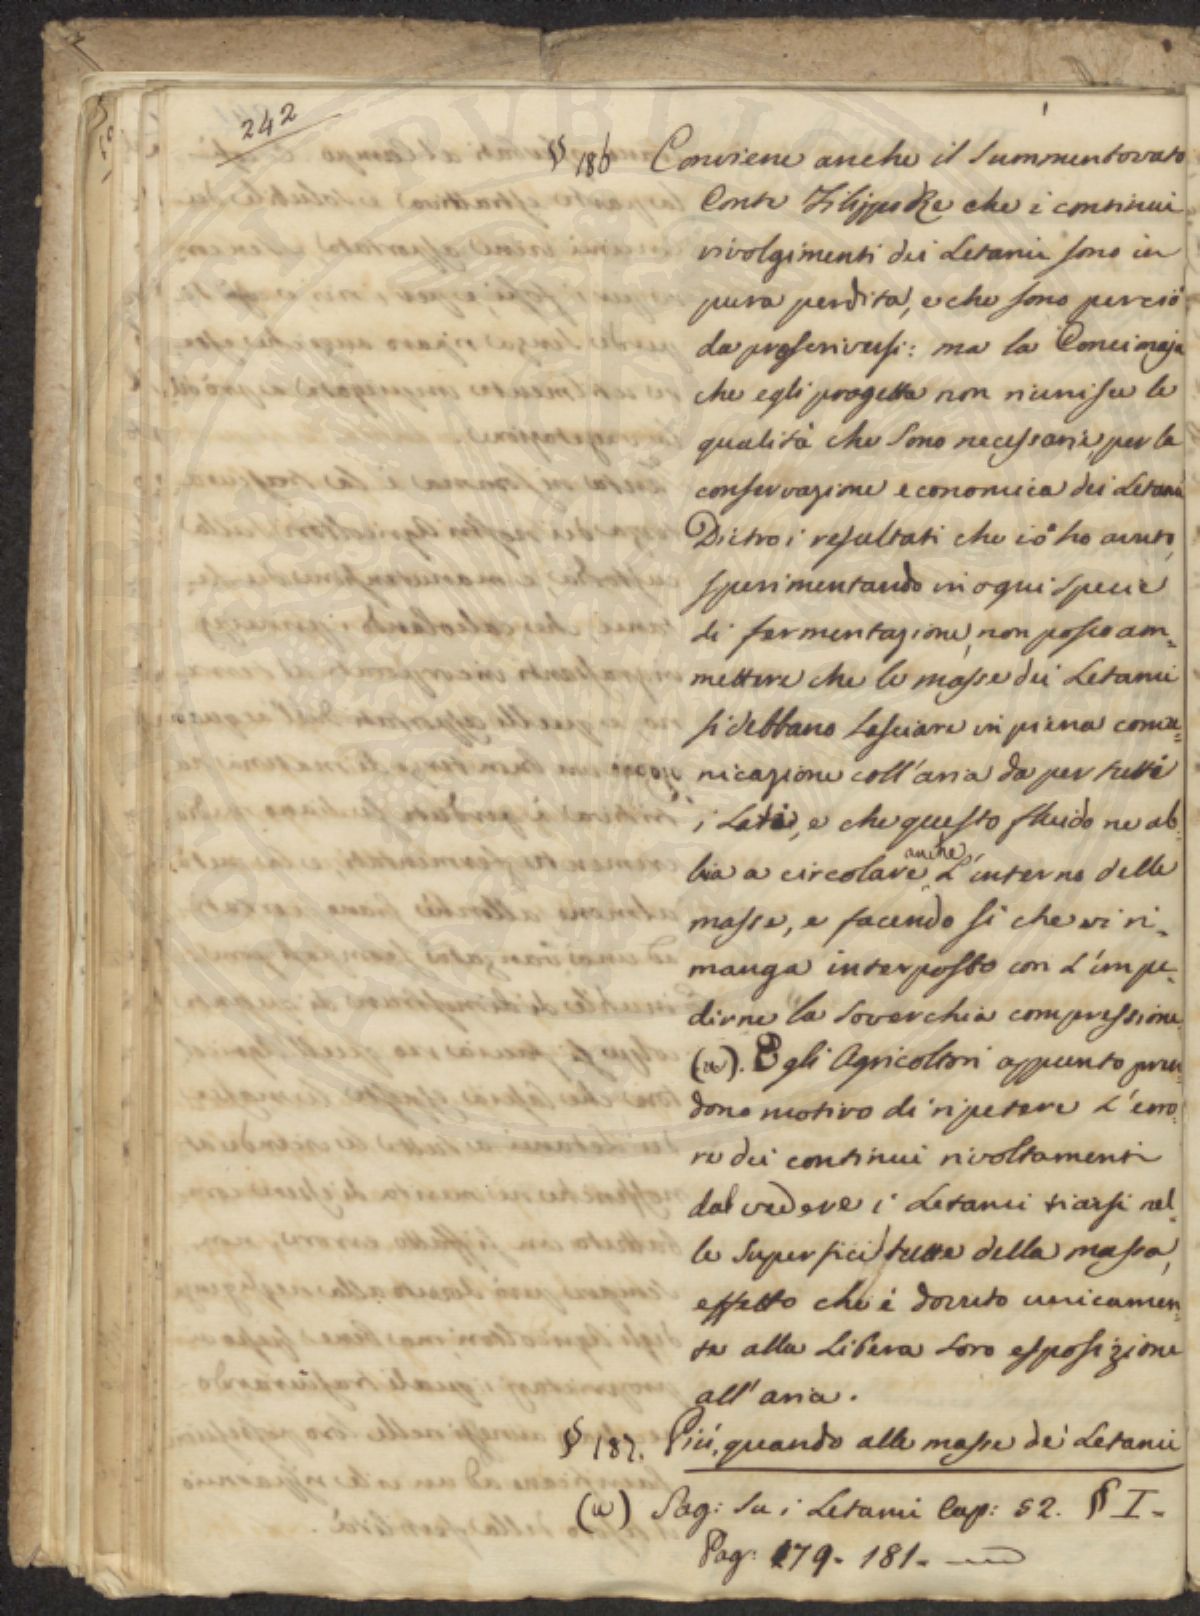 242
§ 186 Conviene anche il Summentovato
Conte Filippo Re che i continui
rivolgimenti dei Letami sono in
pura perdita, e che sono perciò
da proscriversi: ma la Concimaja
che egli progetta non riunisce le
qualità che sono necessarie, per la
conservazione economica dei Letami
Dietro i resultati che io ho avuto,
sperimentando in ogni specie
di fermentazione, non posso am=
mettere che le masse dei Letami
si debbano lasciare in piena comu=
nicazione coll'aria da per tutti
i Lati, e che questo fluido ne ab=
bia a circolare anche L'interno delle
masse, e facendo sì che vi ri=
manga interposto con L'impe=
dirne la soverchia compressione
(a). Egli Agricoltori appunto pren=
dono motivo di ripetere L'erro=
re dei continui rivoltamenti
dal vedere i Letami
le superfici tutte della massa,
effetto che è dovuto unicamen=
te alla Libera loro esposizione
all'aria.
§ 187. Più, quando alle masse de' Letami
(a) Sag: su i Letami Cap: 52. § I-
Pag: 179- 181-